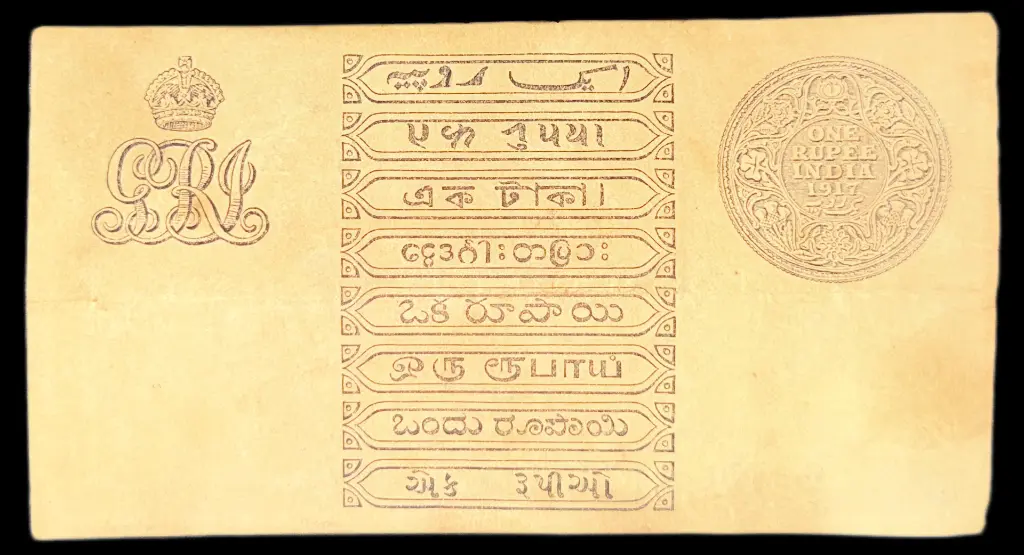 GRI
ایک روپیہ
𑂉𑂍 𑂩𑂳𑂣𑂨𑂰
এক টাকা।
ငွေဒင်္ဂါးတပြား
ఒక రూపాయి
ஒரு ரூபாய்
ಒಂದು ರೂಪಾಯಿ
એક રૂપીઓ
ONE
RUPEE
INDIA
1917